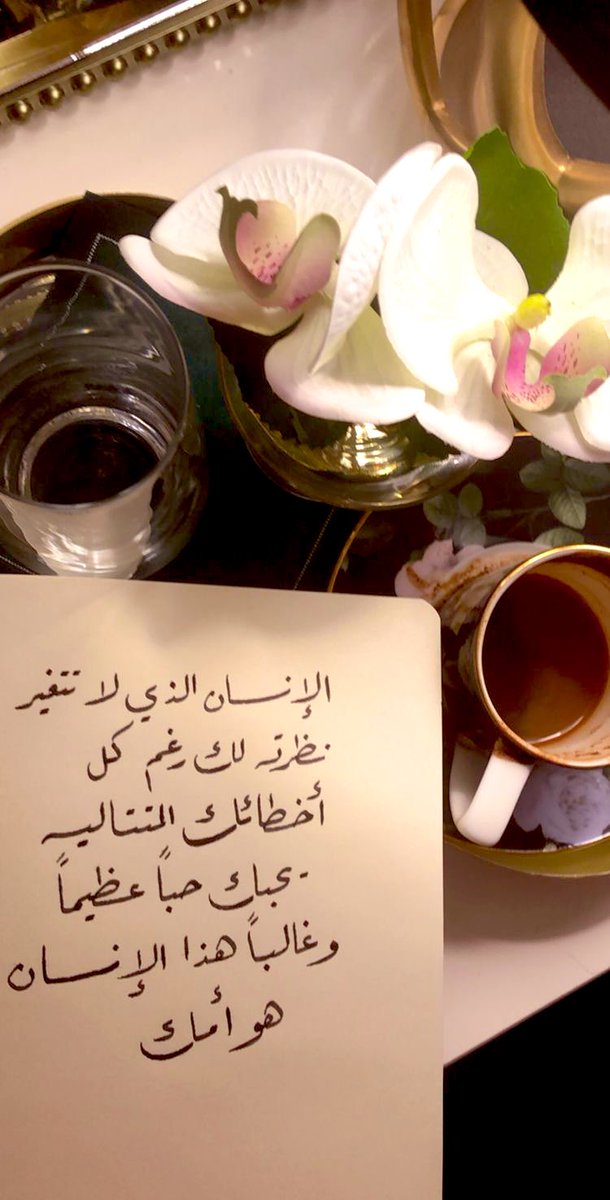 الإنسان الذي لا تتغير
نظرته لك رغم كل
أخطائك المتتاليه
يحبك حباً عظيماً
وغالباً هذا الإنسان
هو أمك